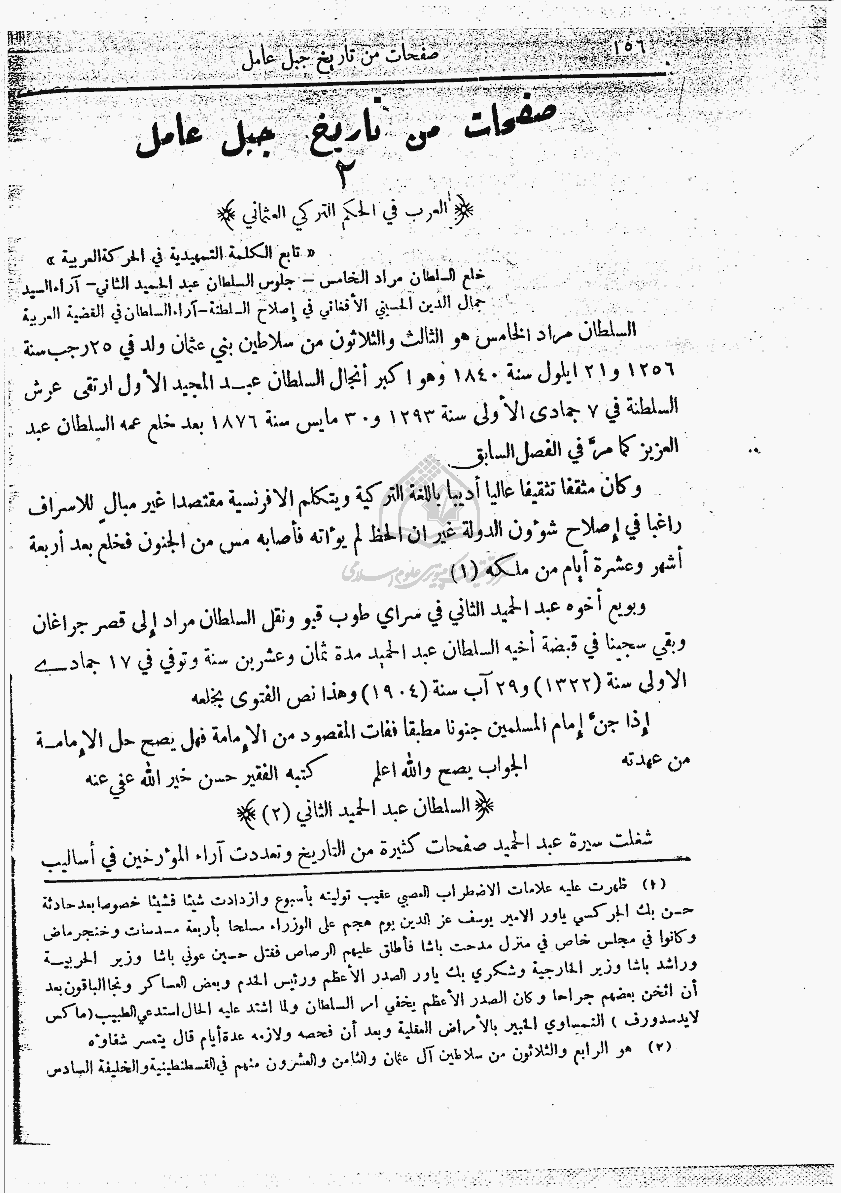 ١٥٦
صفحات من تاريخ جبل عامل
صفحات من تاريخ جبل عامل
٢
﴿ العرب في الحكم التركي العثماني ﴾
« تابع الكلمة التمهيدية في الحركة العربية »
خلع السلطان مراد الخامس – جلوس السلطان عبد الحميد الثاني – آراء السيد
جمال الدين الحسيني الأفغاني في إصلاح السلطنة – آراء السلطان في القضية العربية
السلطان مراد الخامس هو الثالث والثلاثون من سلاطين بني عثمان ولد في ٢٥ رجب سنة
١٢٥٦ و ٢١ ايلول سنة ١٨٤٠ وهو اكبر أنجال السلطان عبد المجيد الأول ارتقى عرش
السلطنة في ٧ جمادى الأولى سنة ١٢٩٣ و ٣٠ مايس سنة ١٨٧٦ بعد خلع عمه السلطان عبد
العزيز كما مرَّ في الفصل السابق
وكان مثقفا تثقيفا عاليا أديبا باللغة التركية ويتكلم الافرنسية مقتصدا غير مبال للاسراف
راغبا في إصلاح شوُون الدولة غير ان الحظ لم يوُاته فأصابه مس من الجنون فخلع بعد أربعة
أشهر وعشرة أيام من ملكه (١)
وبويع أخوه عبد الحميد الثاني في سراي طوب قبو ونقل السلطان مراد إلى قصر جراغان
وبقي سجينا في قبضة أخيه السلطان عبد الحميد مدة ثمان وعشرين سنة وتوفي في ١٧ جمادے
الاولى سنة (١٣٢٢) و ٢٩ آب سنة (١٩٠٤) وهذا نص الفتوى بخلعه
إذا جنَّ إمام المسلمين جنونا مطبقا ففات المقصود من الإمامة فهل يصح حل الإمامة
من عهدته الجواب يصح والله اعلم كتبه الفقير حسن خير الله عفي عنه
﴿ السلطان عبد الحميد الثاني (٢) ﴾
شغلت سيرة عبد الحميد صفحات كثيرة من التاريخ وتعددت آراء الموُرخين في أساليب
(١) ظهرت عليه علامات الاضطراب العصبي عقيب توليته بأسبوع وازدادت شيئا فشيئا خصوصا بعد حادثة
حسن بك الجركسي ياور الامير يوسف عز الدين يوم هجم على الوزراء مسلحا بأربعة مسدسات وخنجر ماض
وكانوا في مجلس خاص في منزل مدحت باشا فأطلق عليهم الرصاص فقتل حسين عوني باشا وزير الحربية
وراشد باشا وزير الخارجية وشكري بك ياور الصدر الأعظم ورئيس الخدم وبعض العساكر ونجا الباقون بعد
أن اثخن بعضهم جراحا وكان الصدر الأعظم يخفي امر السلطان ولما اشتد عليه الحال استدعى الطبيب (ماكس
لايدسدورف) النمساوي الخبير بالأمراض العقلية وبعد أن فحصه ولازمه عدة أيام قال يتعسر شفاوُه
(٢) هو الرابع والثلاثون من سلاطين آل عثمان والثامن والعشرون منهم في القسطنطينية والخليفة السادس